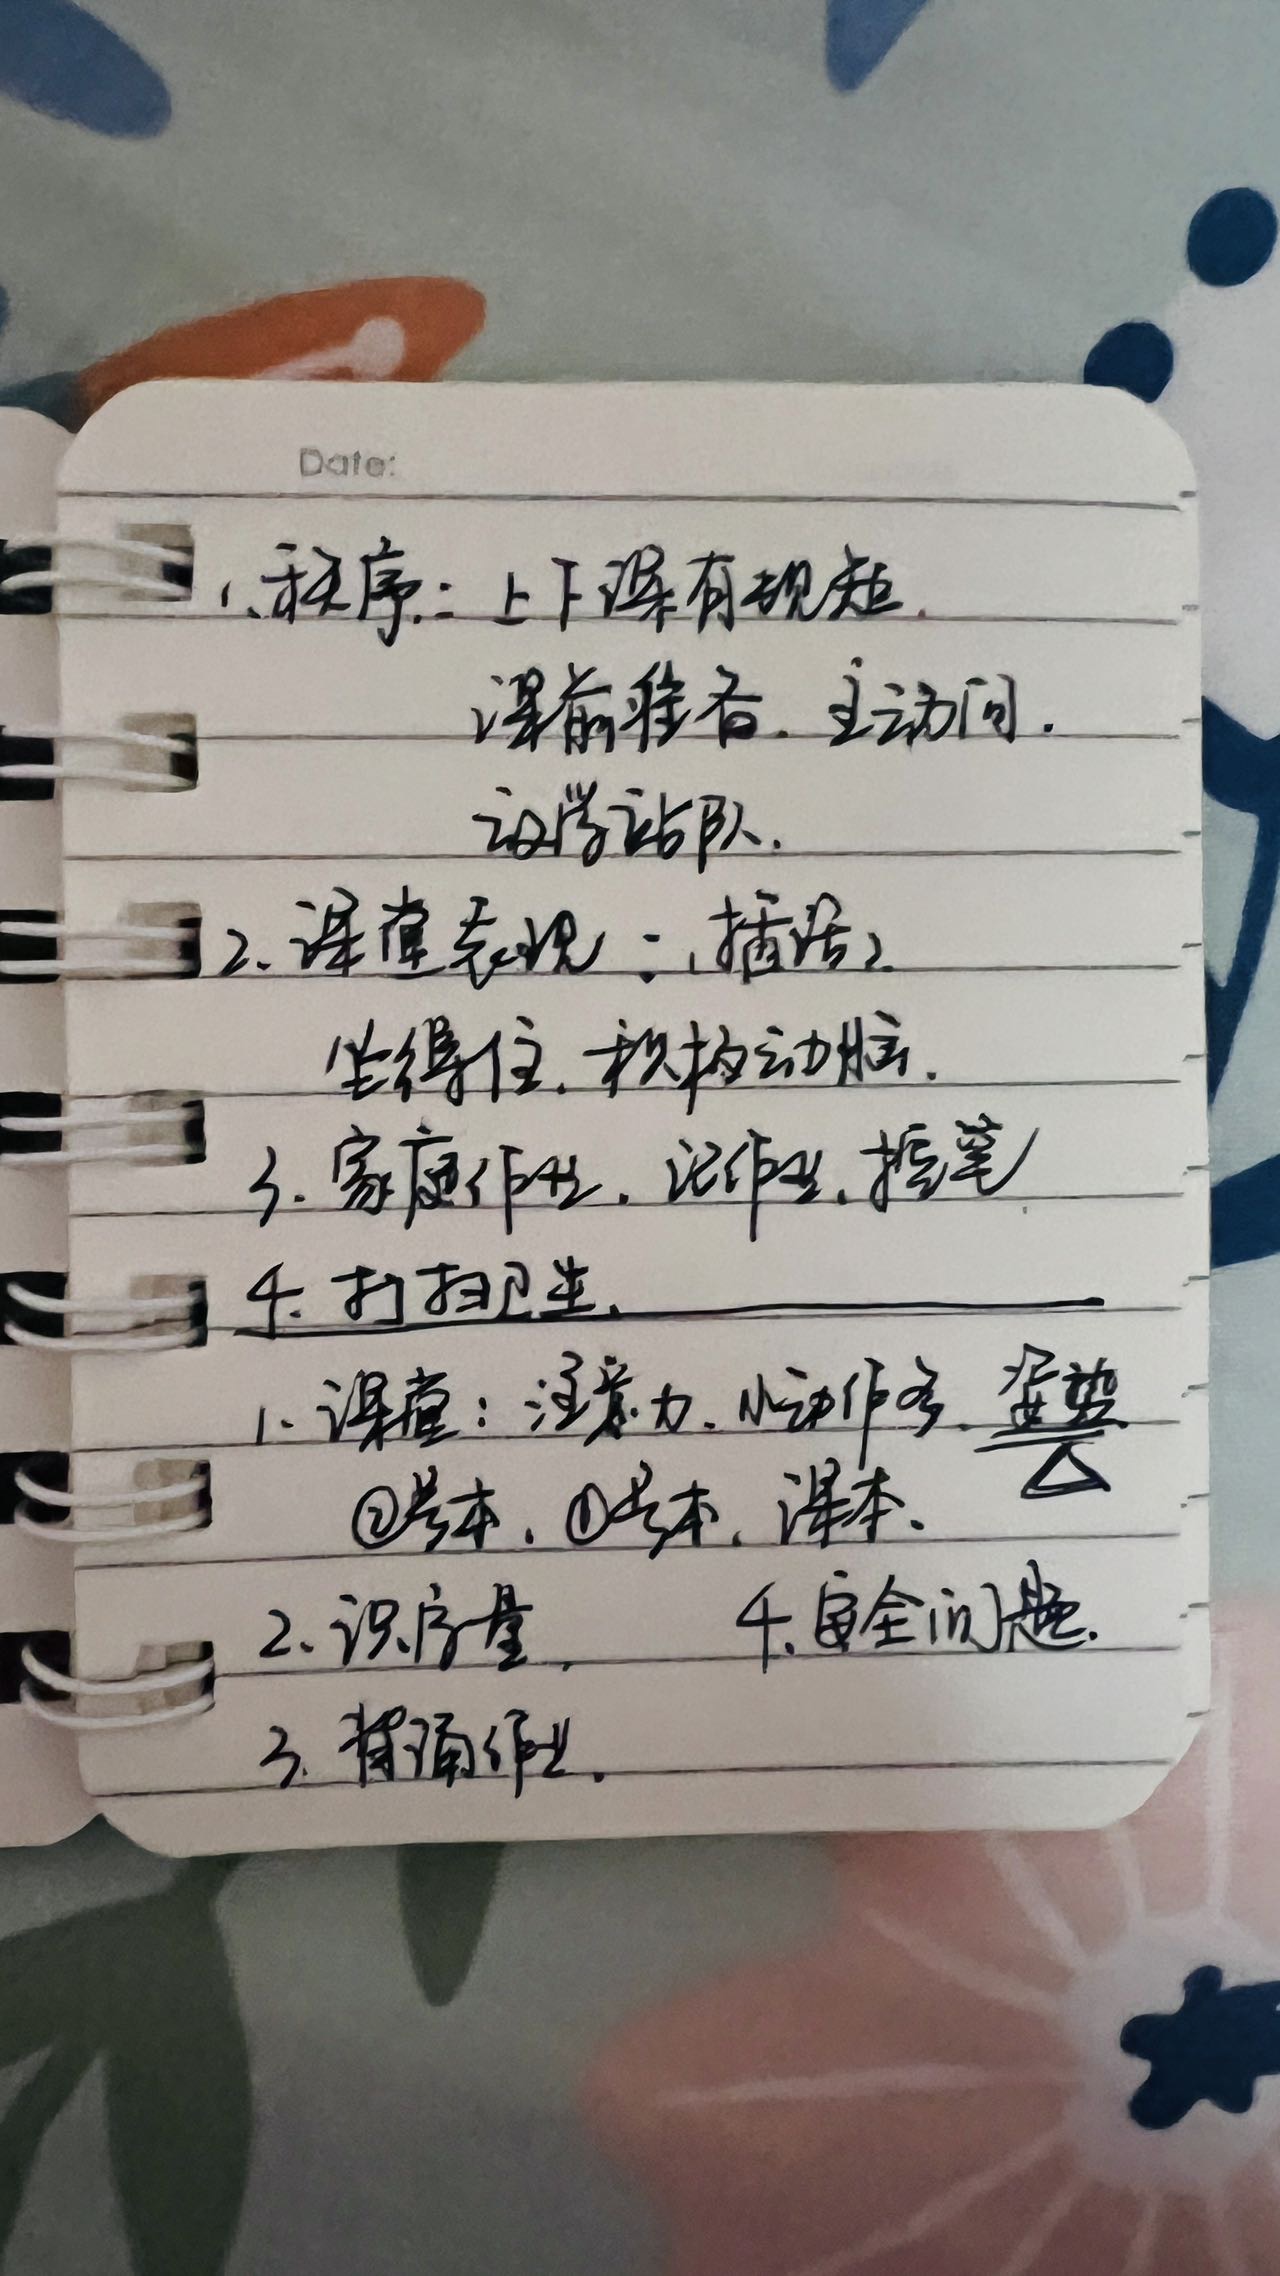 Date:
1、秩序：上下课有规矩.
课前准备. 主动问.
放学站队.
2、课堂表现：插话、
坐得住. 积极动脑.
3. 家庭作业. 记作业. 控笔
4. 打扫卫生.
1、课堂：注意力. 小动作多.
②号本. ①号本. 课本.
2、识字量. 4.安全问题.
3. 背诵作业.